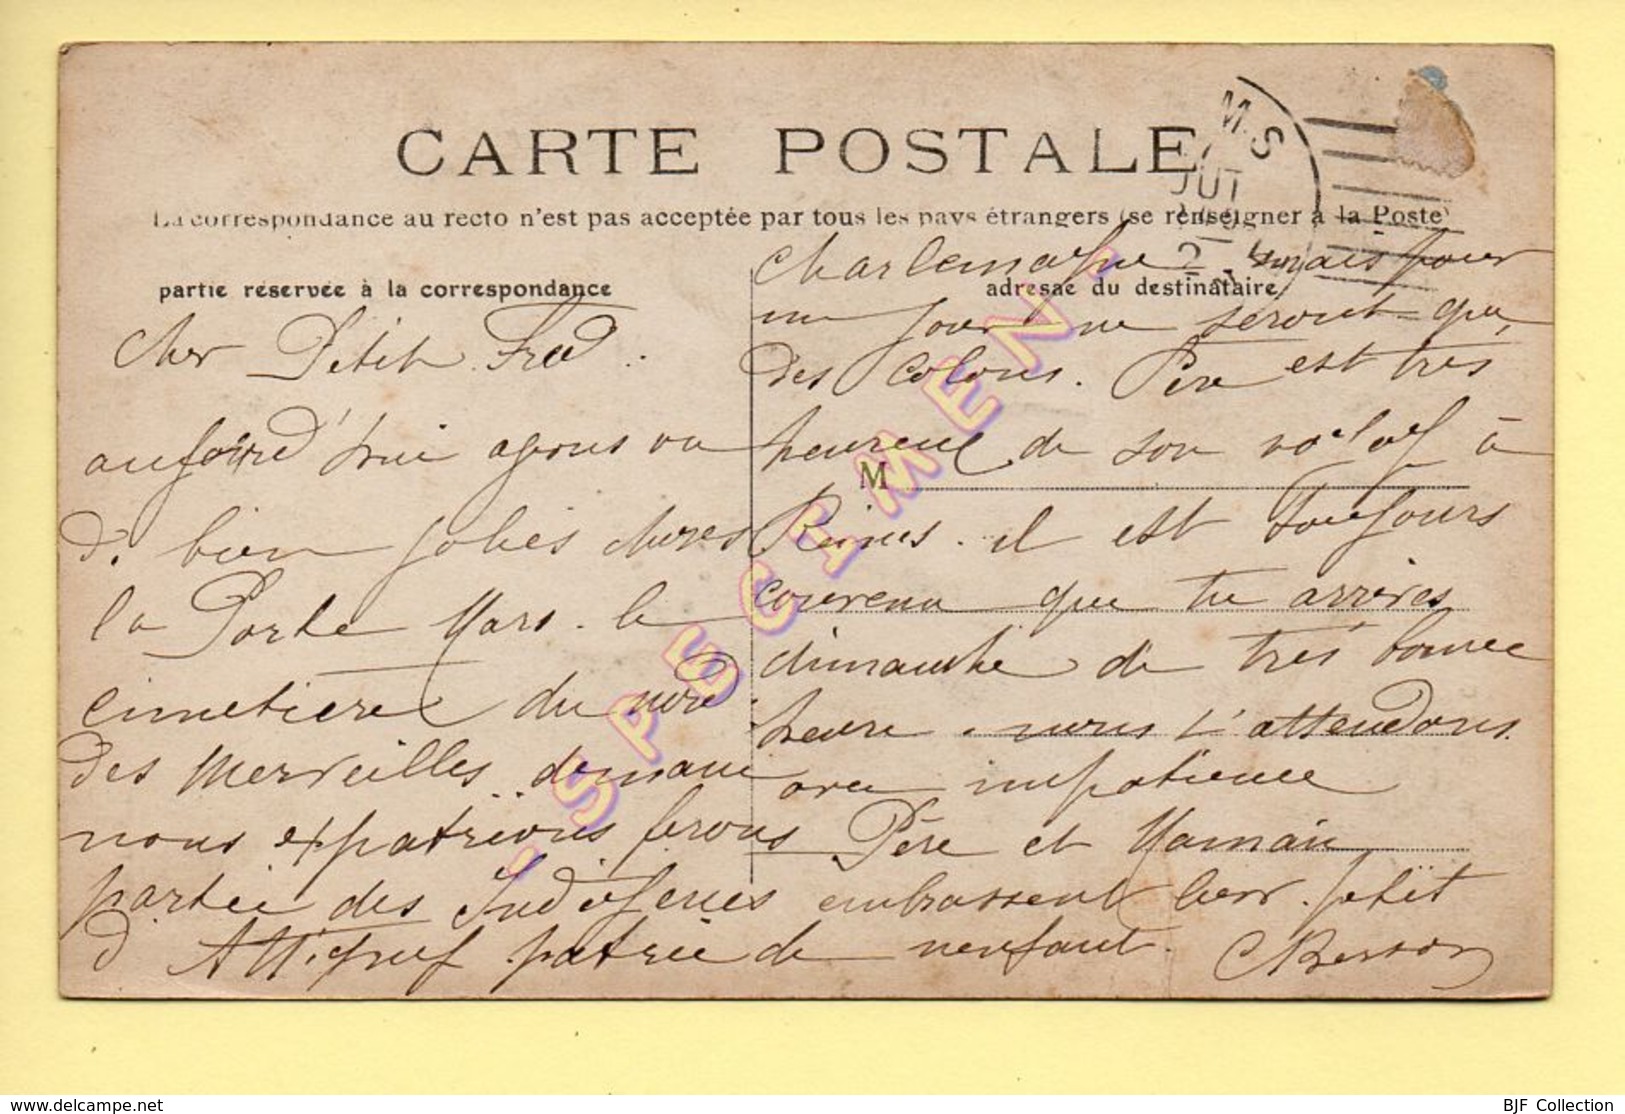 CARTE POSTALE
La correspondance au recto n'est pas acceptée par tous les pays étrangers (se renseigner à la Poste)
partie réservée à la correspondance
adresse du destinataire
M
M S
JUT
2
SPECIMEN
Cher Petit Fred.
aujourd'hui avons vu
de bien jolies choses
la Porte Mars. le
cimetière du nord
des Merveilles. demain
nous expatrions ferons
partie des Indigènes
d'Attigny patrie de
Charlemagne mais pour
un jour ne seront que
des colons. Père est très
heureux de son voyage à
Reims. il est toujours
convenu que tu arrives
dimanche de très bonne
heure. nous t'attendons
avec impatience
Père et Maman
embrassent leur petit
enfant. CBesson
BJF Collection